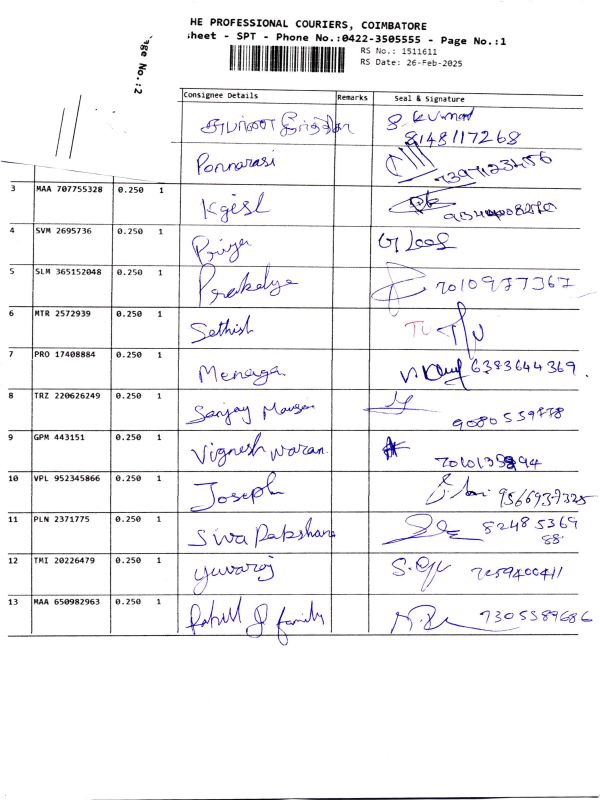 HE PROFESSIONAL COURIERS, COIMBATORE
sheet - SPT - Phone No.:0422-3505555 - Page No.:1
RS No.: 1511611
RS Date: 26-Feb-2025
ge No.:2
Consignee Details Remarks Seal & Signature
S Kumar
8148117268
Ponnarasi
3 MAA 707755328 0.250 1 Kgisl
4 SVM 2695736 0.250 1 Priya
5 SLM 365152048 0.250 1 7010977367
6 MTR 2572939 0.250 1 Sathish
7 PRO 17408884 0.250 1 Menaga 6383644369
8 TRZ 220626249 0.250 1 Sanjay
9 GPM 443151 0.250 1 Vignesh waran
10 VPL 952345866 0.250 1 Joseph 9566937325
11 PLN 2371775 0.250 1 Siva 82485369
88
12 TMI 20226479 0.250 1 yuvaraj
13 MAA 650982963 0.250 1 family 7305389686